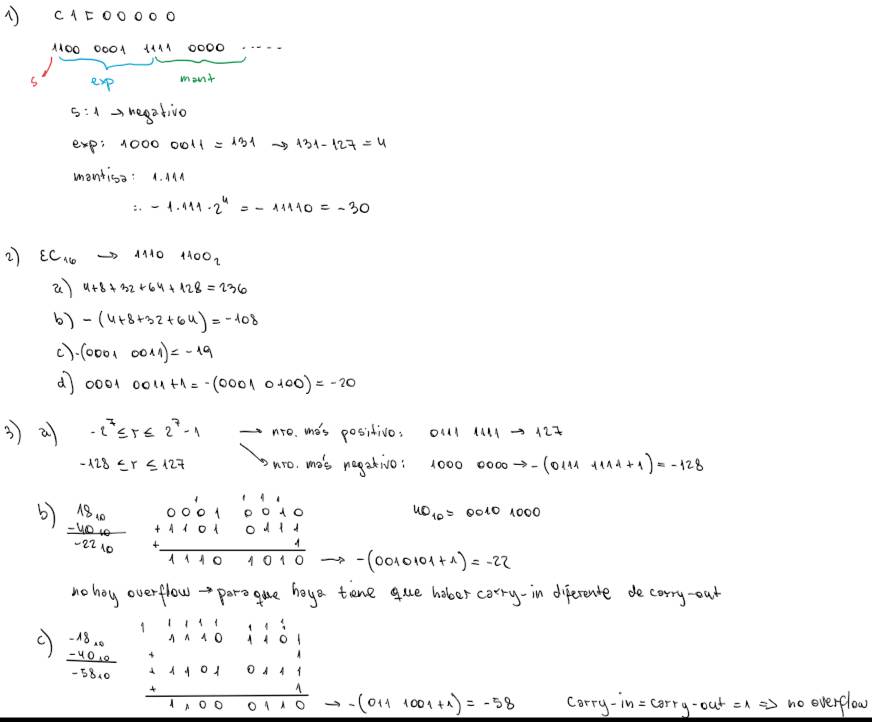 1) C1F00000
1100 0001 1111 0000 .....
s exp mant
s: 1 → negativo
exp: 1000 0011 = 131 → 131-127 = 4
mantisa: 1.111
∴ - 1.111 · 2⁴ = - 11110 = -30
2) EC₁₆ → 1110 1100₂
a) 4+8+32+64+128 = 236
b) - (4+8+32+64) = -108
c) -(0001 0011) = -19
d) 0001 0011+1 = -(0001 0100) = -20
3) a) -2⁷ ≤ r ≤ 2⁷-1 → nro. más positivo: 0111 1111 → 127
-128 ≤ r ≤ 127 → nro. más negativo: 1000 0000 → -(0111 1111+1) = -128
b) 18₁₀ 1 1 1 1
0001 0010 40₁₀ = 0010 1000
-40₁₀ + 1101 0111
-22₁₀ + 1
1110 1010 → -(0010101+1) = -22
no hay overflow → para que haya tiene que haber carry-in diferente de carry-out
c) 1 1 1 1 1 1 1 1
-18₁₀ 1110 1101
-40₁₀ + 1
-58₁₀ + 1101 0111
+ 1
1100 0110 → -(011 1001+1) = -58 Carry-in = carry-out = 1 => no overflow